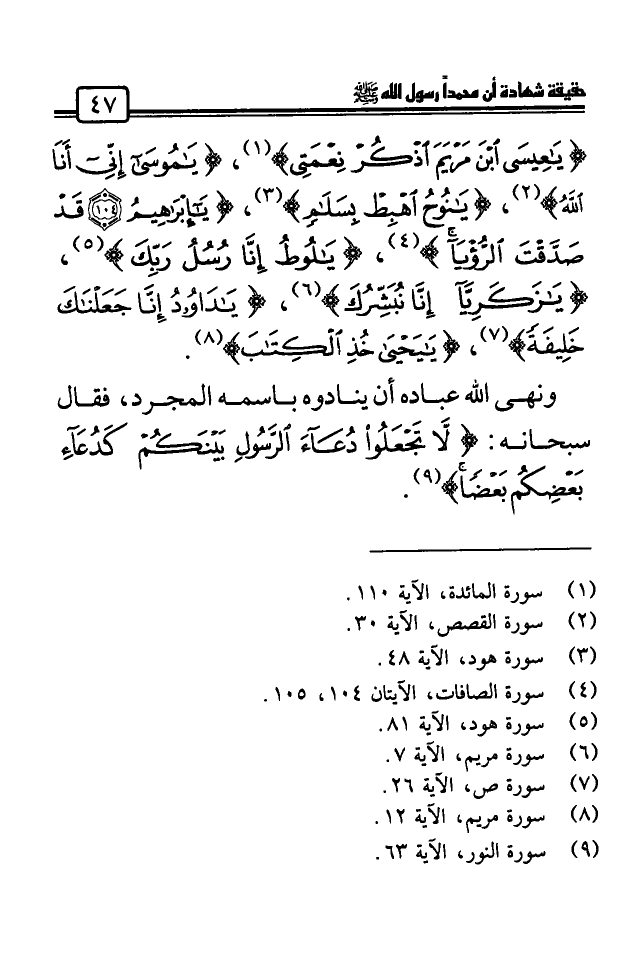 حقيقة شهادة أن محمداً رسول الله ﷺ
٤٧
﴿ يَٰعِيسَى ٱبْنَ مَرْيَمَ ٱذْكُرْ نِعْمَتِي﴾(١)، ﴿ يَٰمُوسَىٰٓ إِنِّىٓ أَنَا
ٱللَّهُ﴾(٢)، ﴿ يَٰنُوحُ ٱهْبِطْ بِسَلَٰمٍ﴾(٣)، ﴿ يَٰٓإِبْرَٰهِيمُ ١٠٤ قَدْ
صَدَّقْتَ ٱلرُّءْيَآ ۚ﴾(٤)، ﴿ يَٰلُوطُ إِنَّا رُسُلُ رَبِّكَ ﴾(٥)،
﴿ يَٰزَكَرِيَّآ إِنَّا نُبَشِّرُكَ﴾(٦)، ﴿ يَٰدَاوُۥدُ إِنَّا جَعَلْنَٰكَ
خَلِيفَةً﴾(٧)، ﴿ يَٰيَحْيَىٰ خُذِ ٱلْكِتَٰبَ﴾(٨).
ونهى الله عباده أن ينادوه باسمه المجرد، فقال
سبحانه: ﴿ لَّا تَجْعَلُوا۟ دُعَآءَ ٱلرَّسُولِ بَيْنَكُمْ كَدُعَآءِ
بَعْضِكُم بَعْضًا ۚ﴾(٩).
(١) سورة المائدة، الآية ١١٠.
(٢) سورة القصص، الآية ٣٠.
(٣) سورة هود، الآية ٤٨.
(٤) سورة الصافات، الآيتان ١٠٤، ١٠٥.
(٥) سورة هود، الآية ٨١.
(٦) سورة مريم، الآية ٧.
(٧) سورة ص، الآية ٢٦.
(٨) سورة مريم، الآية ١٢.
(٩) سورة النور، الآية ٦٣.